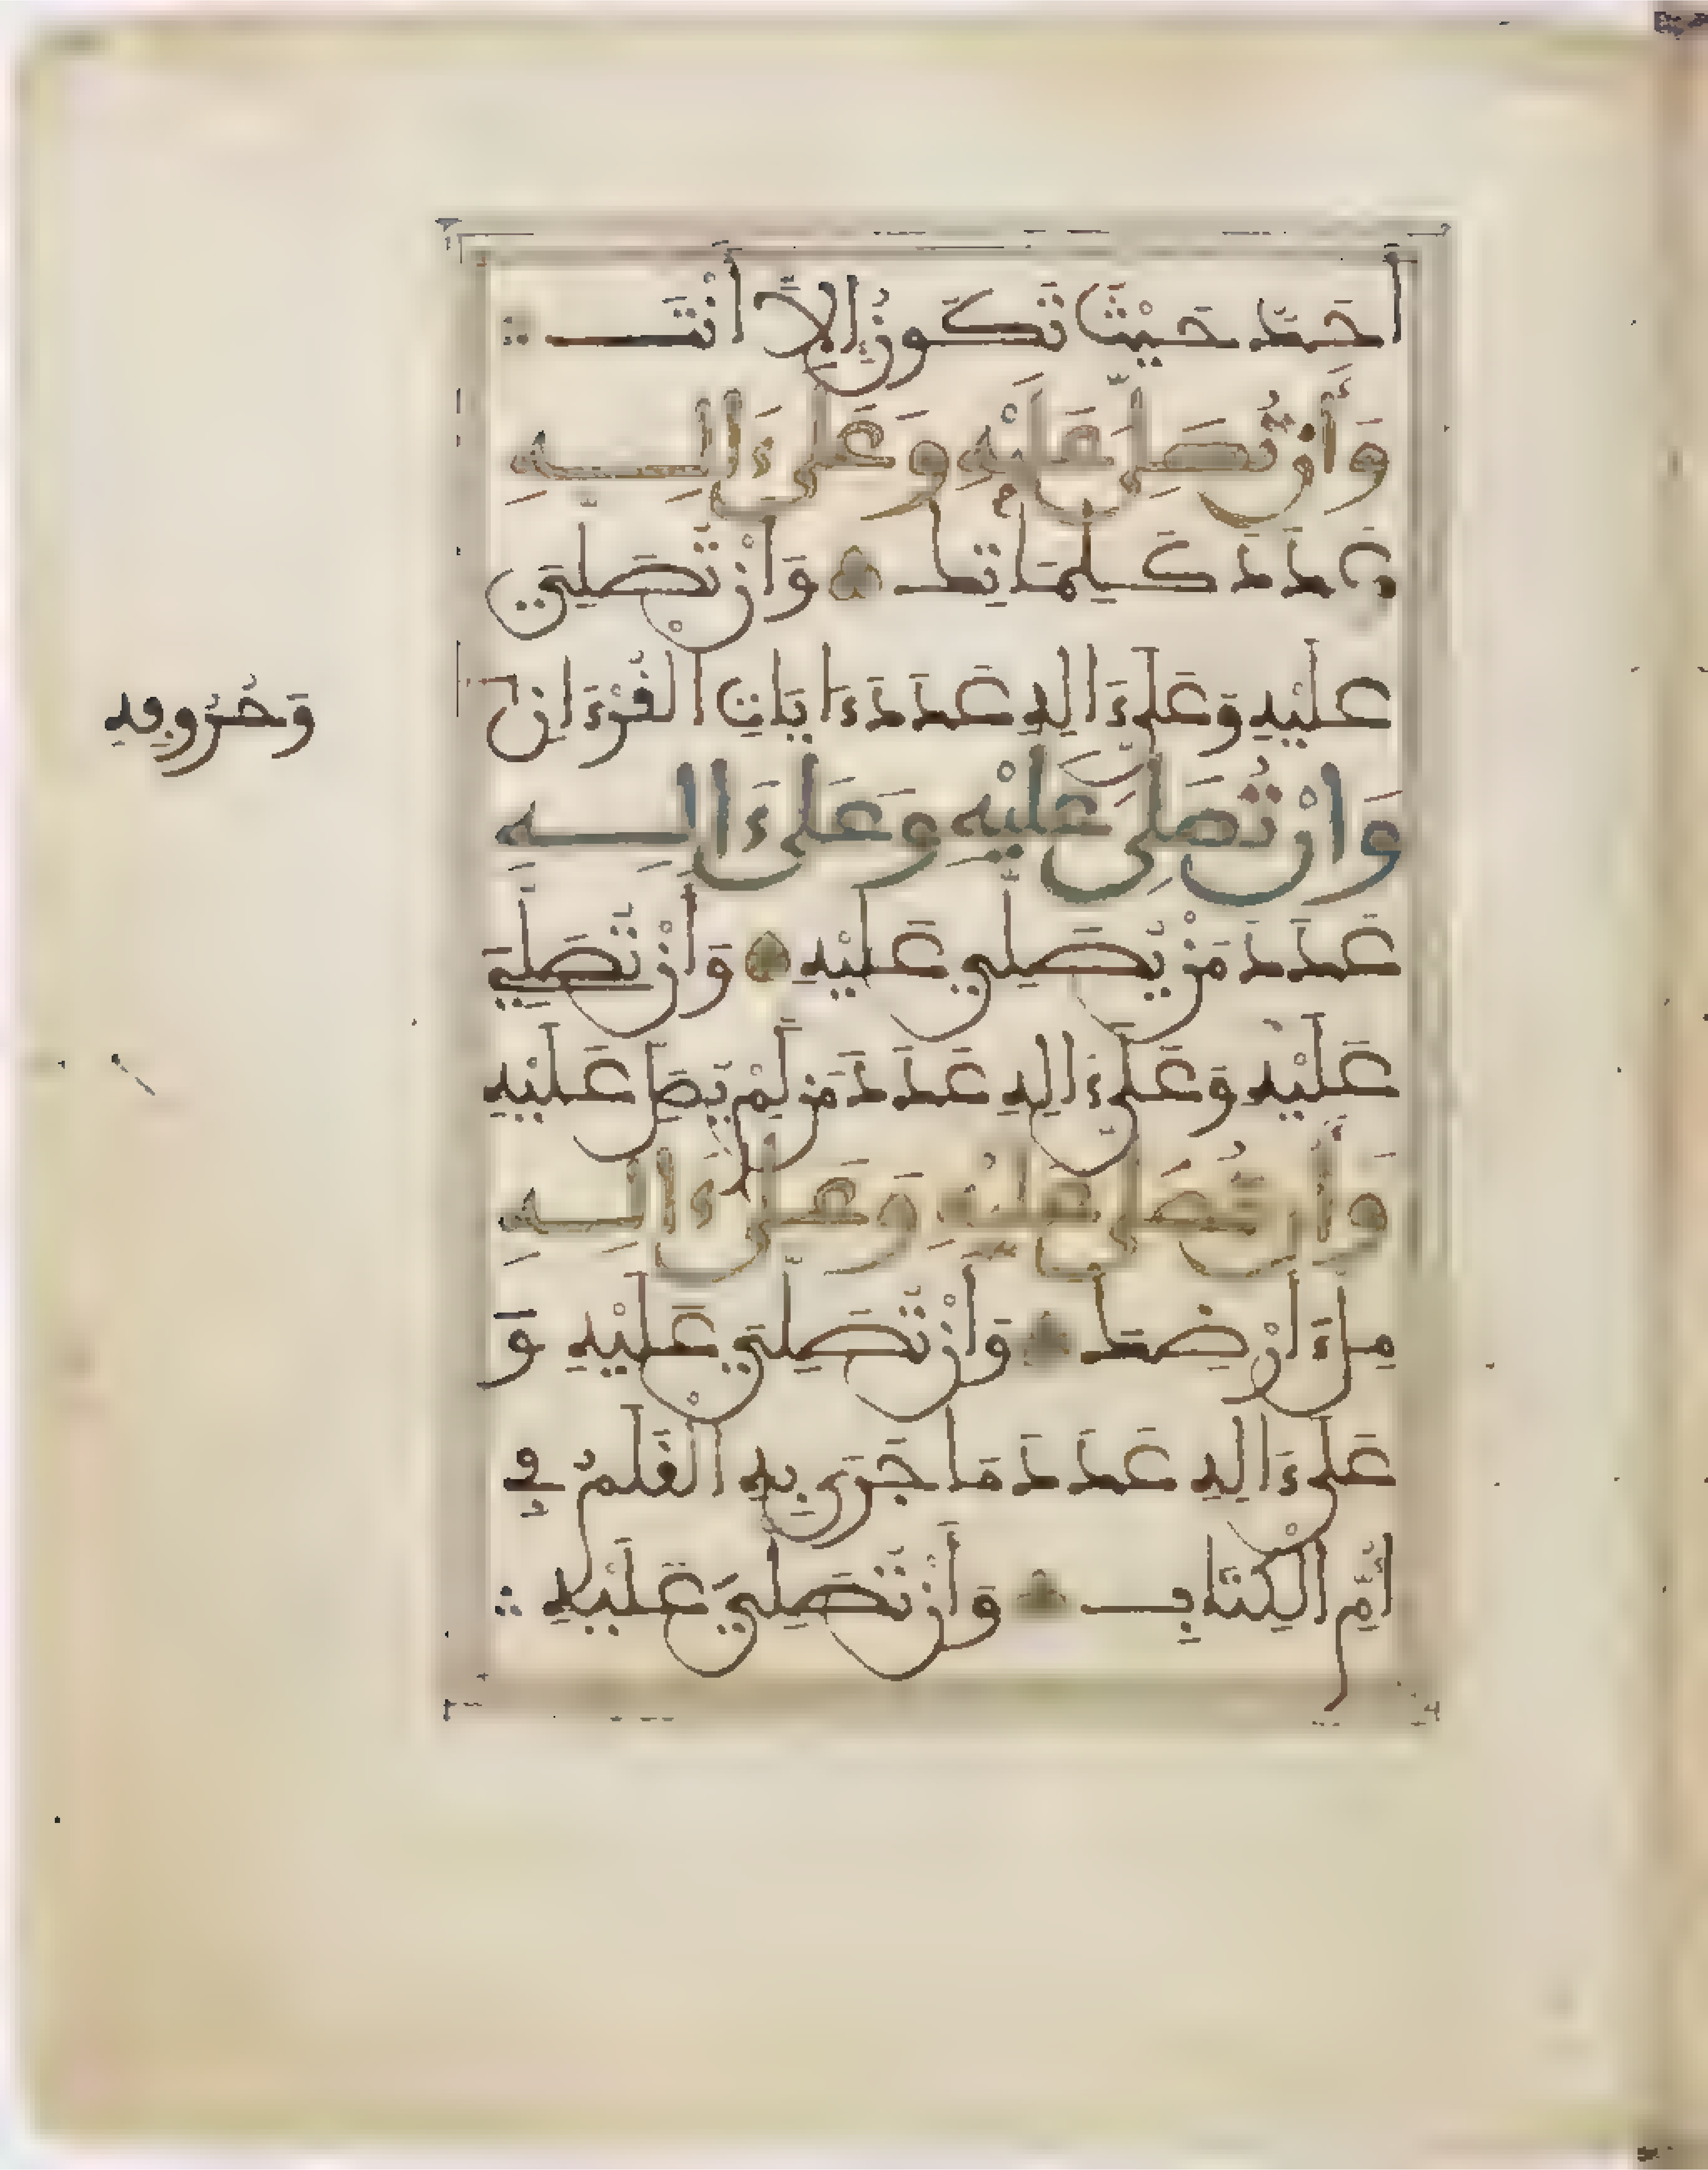 أَحَدٌ حَيْثُ تَكُونُ إِلَّا أَنْتَ
وَأَنْ تُصَلِّيَ عَلَيْهِ وَعَلَىٰ ءَالِهِ
عَدَدَ كَلِمَاتِكَ وَأَنْ تُصَلِّيَ
عَلَيْهِ وَعَلَىٰ ءَالِهِ عَدَدَ ءَايَاتِ الْقُرْءَانِ
وَحُرُوفِهِ
وَأَنْ تُصَلِّيَ عَلَيْهِ وَعَلَىٰ ءَالِهِ
عَدَدَ مَنْ يُصَلِّي عَلَيْهِ وَأَنْ تُصَلِّيَ
عَلَيْهِ وَعَلَىٰ ءَالِهِ عَدَدَ مَنْ لَمْ يُصَلِّ عَلَيْهِ
وَأَنْ تُصَلِّيَ عَلَيْهِ وَعَلَىٰ ءَالِهِ
مِلْءَ أَرْضِكَ وَأَنْ تُصَلِّيَ عَلَيْهِ وَ
عَلَىٰ ءَالِهِ عَدَدَ مَا جَرَىٰ بِهِ الْقَلَمُ فِي
أُمِّ الْكِتَابِ وَأَنْ تُصَلِّيَ عَلَيْهِ